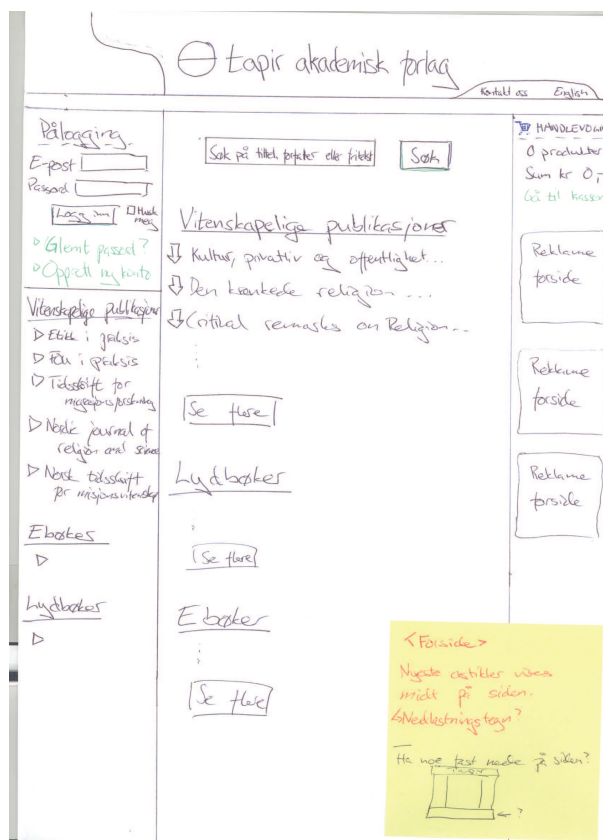 tapir akademisk forlag
Kontakt oss English
Pålogging
E-post
Passord
Logg inn Husk
meg
Glemt passord?
Opprett ny konto
Vitenskapelige publikasjoner
Etikk i praksis
FoU i praksis
Tidsskrift for
migrasjonsforskning
Nordic journal of
religion and science
Norsk tidsskrift
for misjonsvitenskap
Ebøker
Lydbøker
Søk på tittel, forfatter eller fritekst Søk
Vitenskapelige publikasjoner
Kultur, privatliv og offentlighet...
Den krenkede religion ...
Critical remarks on Religion...
Se flere
Lydbøker
Se flere
Ebøker
Se flere
HANDLEVOGN
0 produkter
Sum kr 0,-
Gå til kassen
Reklame
forside
Reklame
forside
Reklame
forside
<Forside>
Nyeste artikler vises
midt på siden.
Nedlastningstegn?
Ha noe fast nede på siden?
?